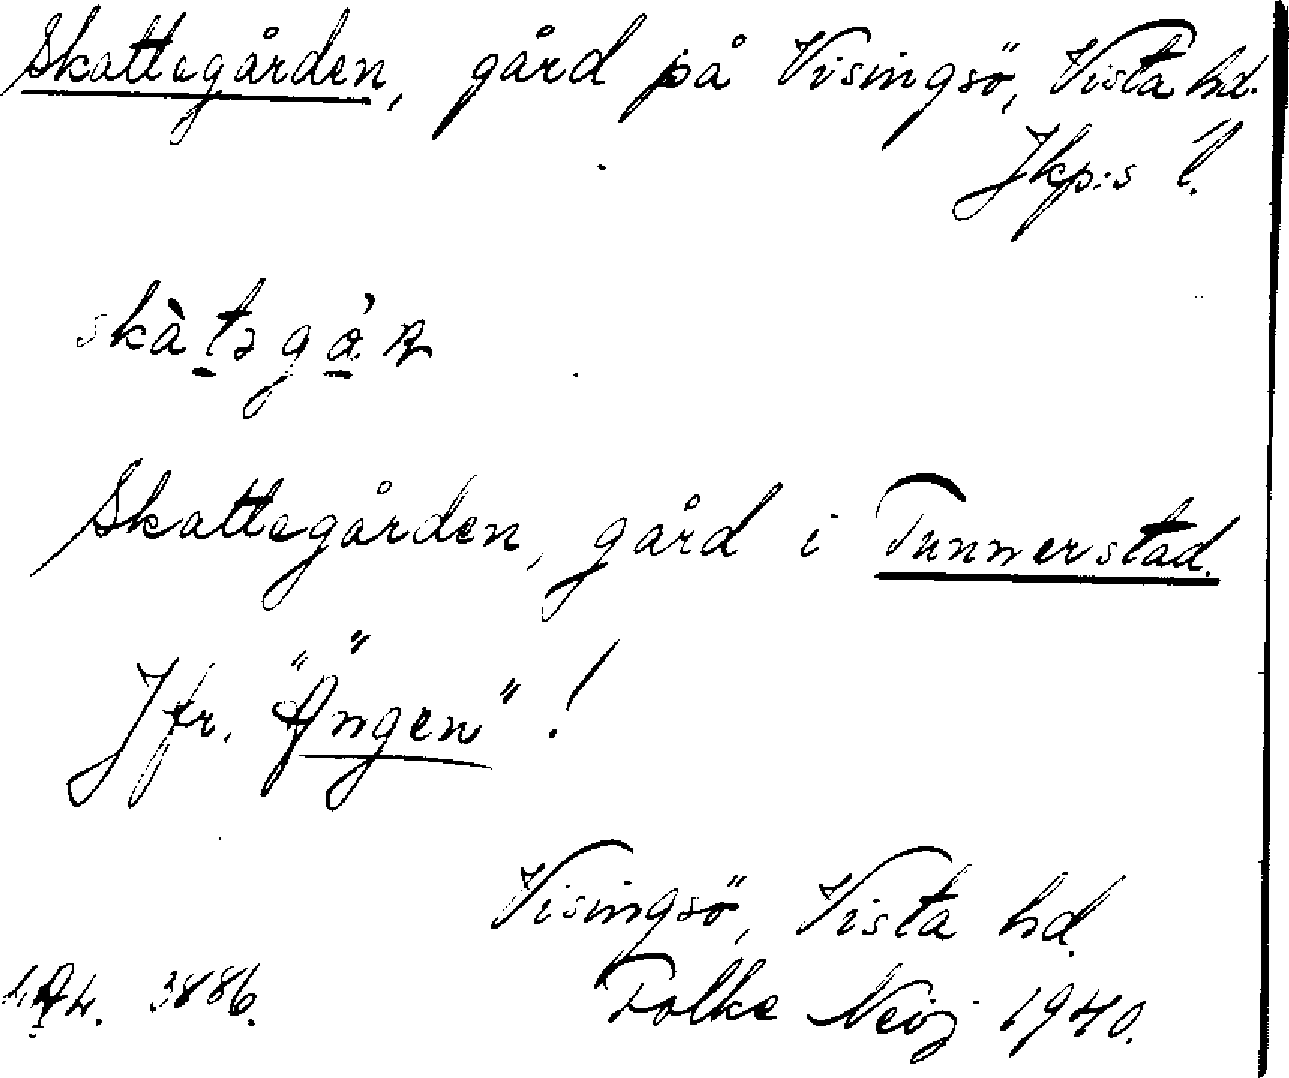 Skattegården, gård på Visingsö, Vista hd.
Jkp:s l.
Skattegården, gård i Tunnerstad.
Jfr. "Ängen"!
Visingsö, Vista hd.
3886. Folke Neij 1940.